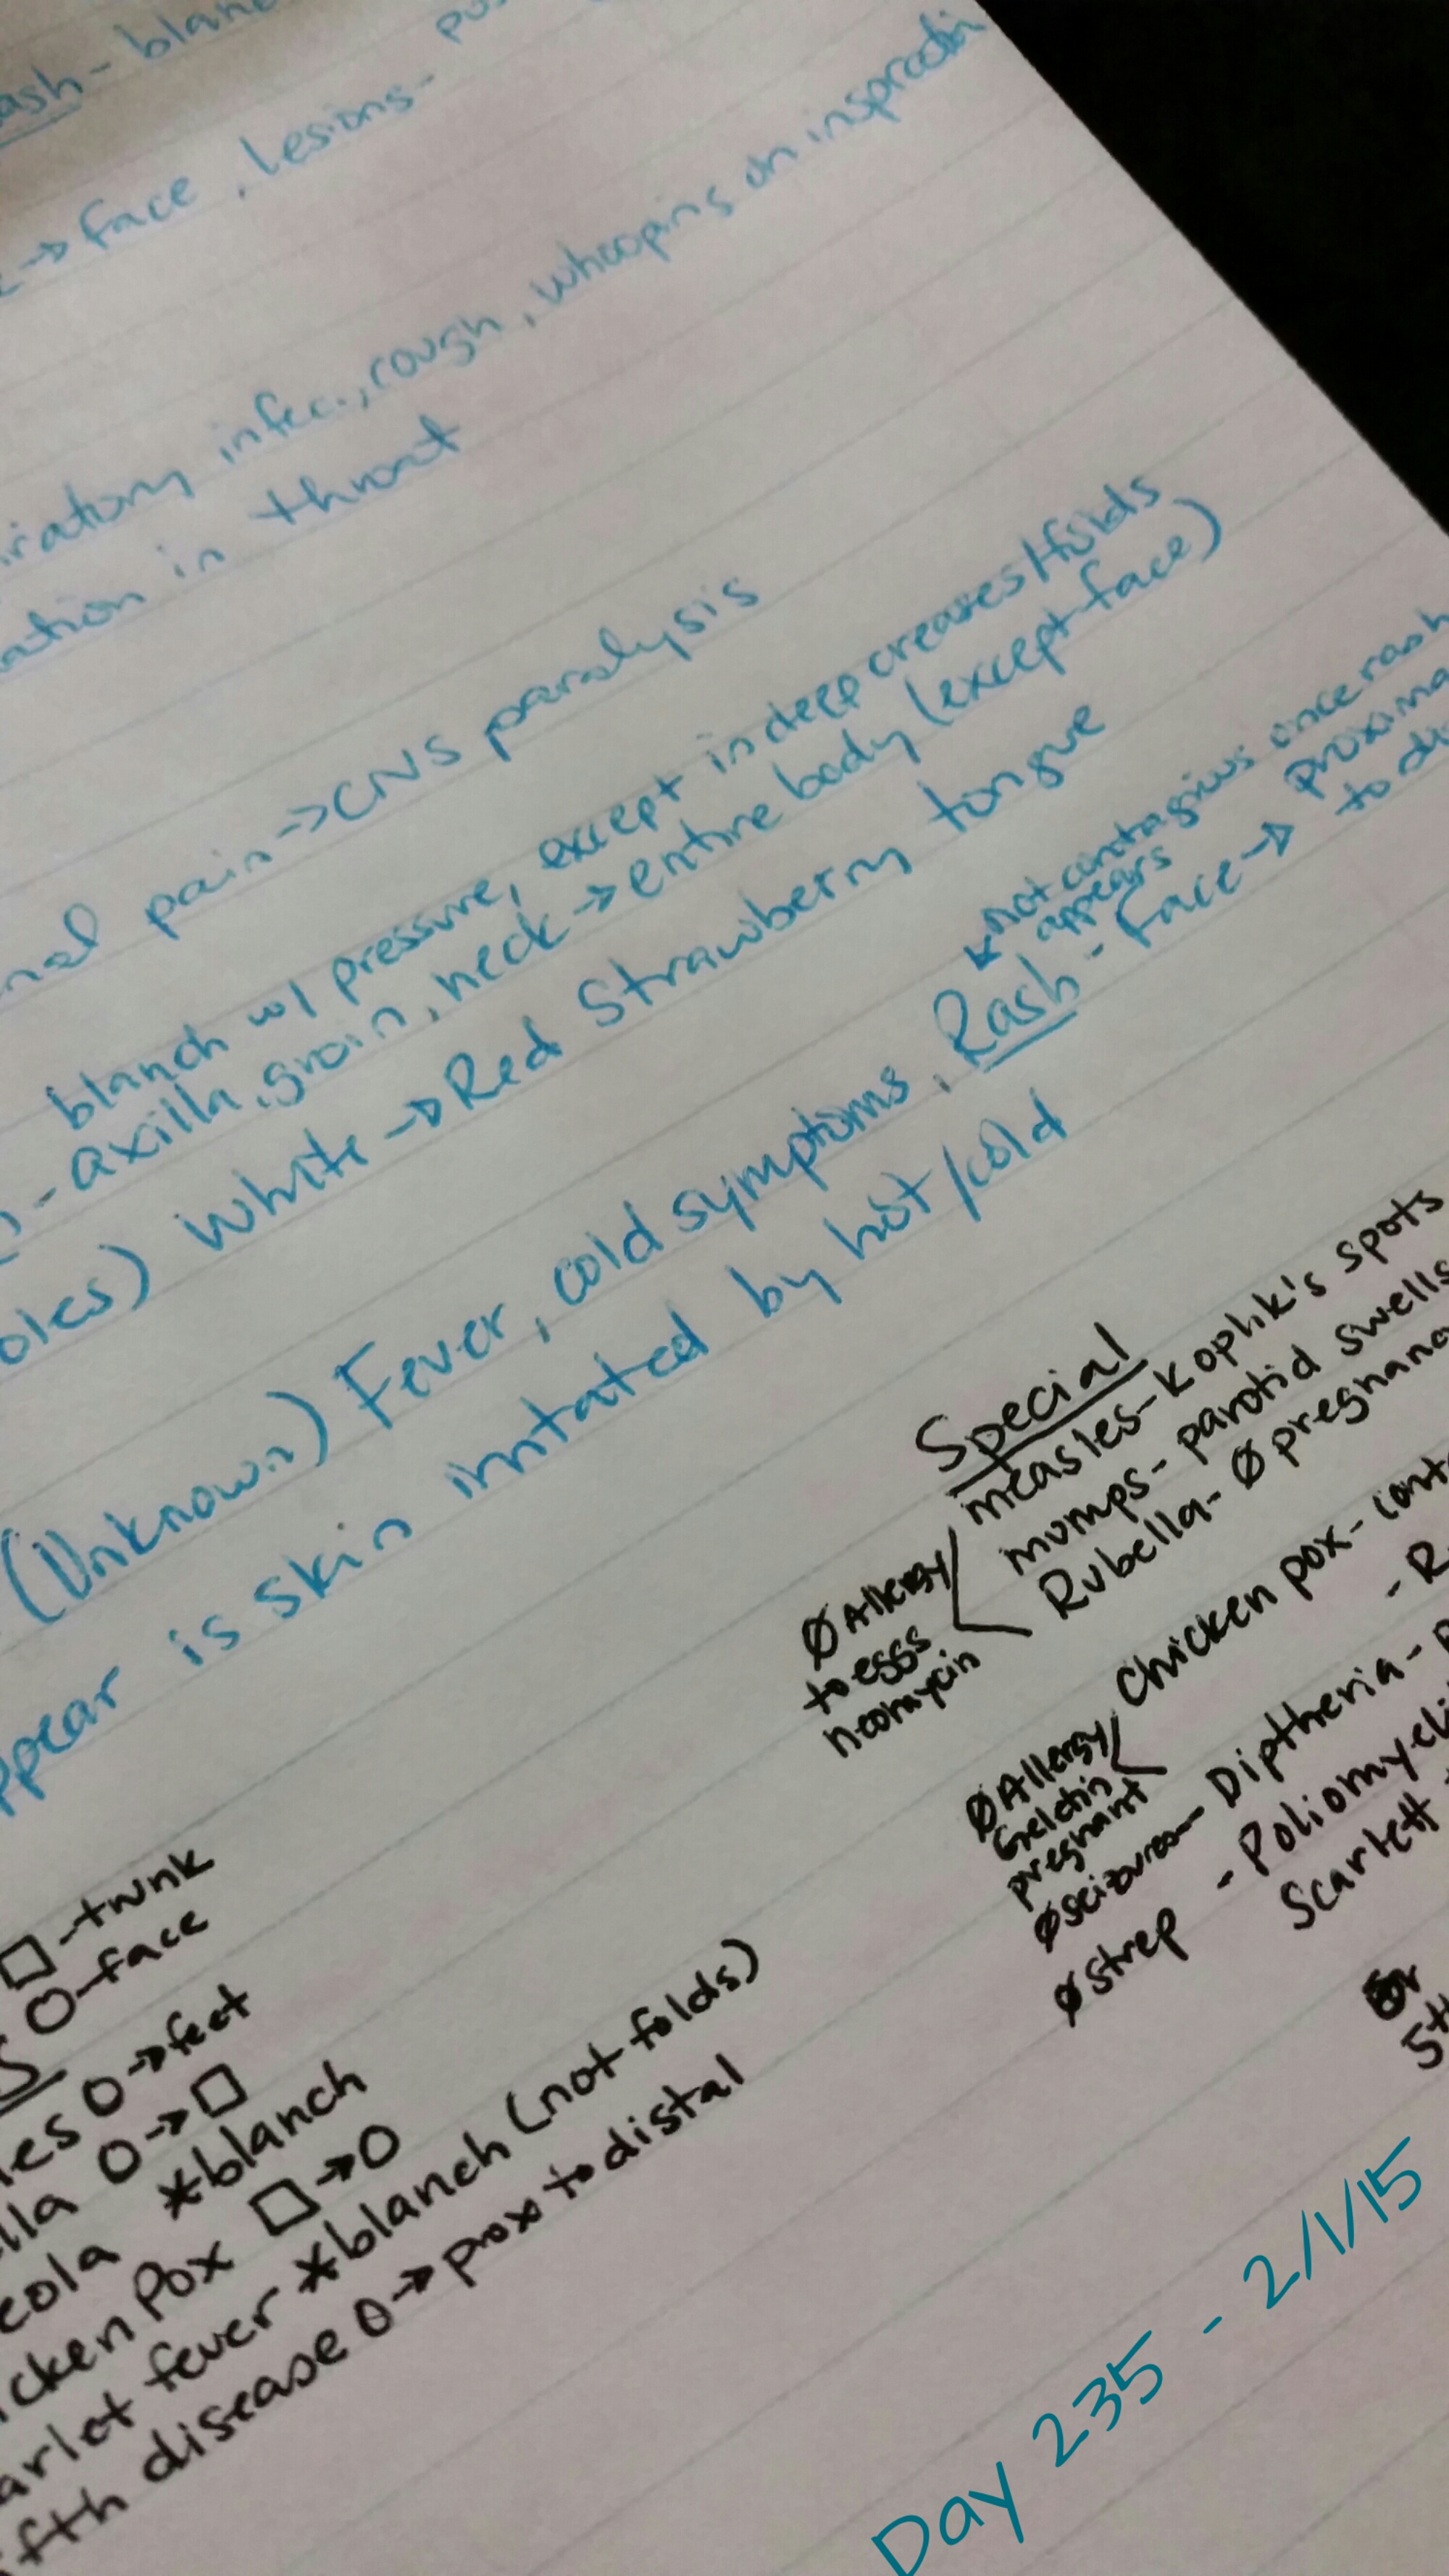 ash - blan
→ face, lesions -
iratory infec., cough, whooping on inspiration
ation in throat
nal pain → CNS paralysis
blanch w/ pressure, except in deep creases/folds
- axilla, groin, neck → entire body (except face)
oles) White → Red Strawberry tongue
not contagious once rash
appears
(Unknown) Fever, cold symptoms, Rash - Face → proxima
to di
ppear is skin irritated by hot/cold
Special
measles - Koplik's spots
mumps - parotid swells
Rubella - Ø pregnanc
Ø Allergy
to eggs
neomycin
Chicken pox - conta
- R
Ø Allergy
Gelatin
pregnant
Ø seizures - Diptheria - p
- Poliomyeli
Ø strep
Scarlett
5t
□ - trunk
O - face
les O → feet
lla O → □
eola *blanch
icken Pox □ → O
arlet fever *blanch (not folds)
ifth disease O → prox to distal
Day 235 - 2/1/15